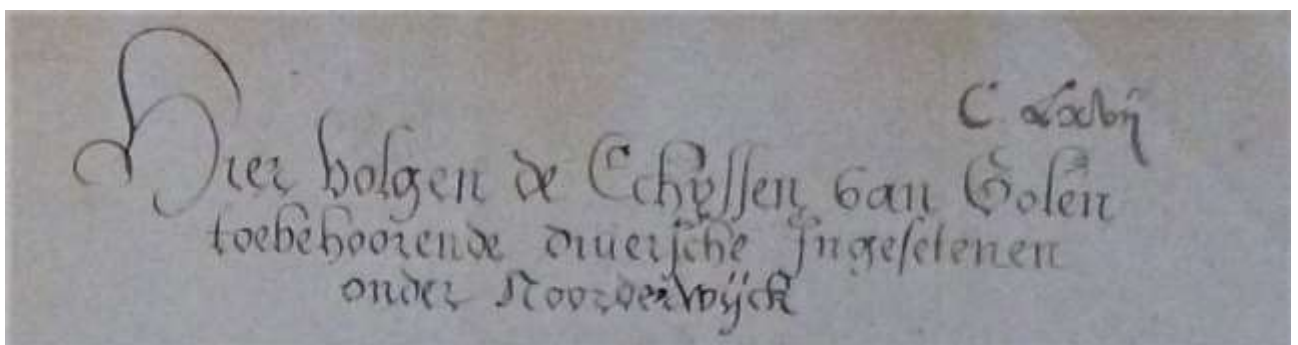 Hier volgen de Echussen van Golen
toebehoorende diuersche Ingesetenen
onder Noorderwijck